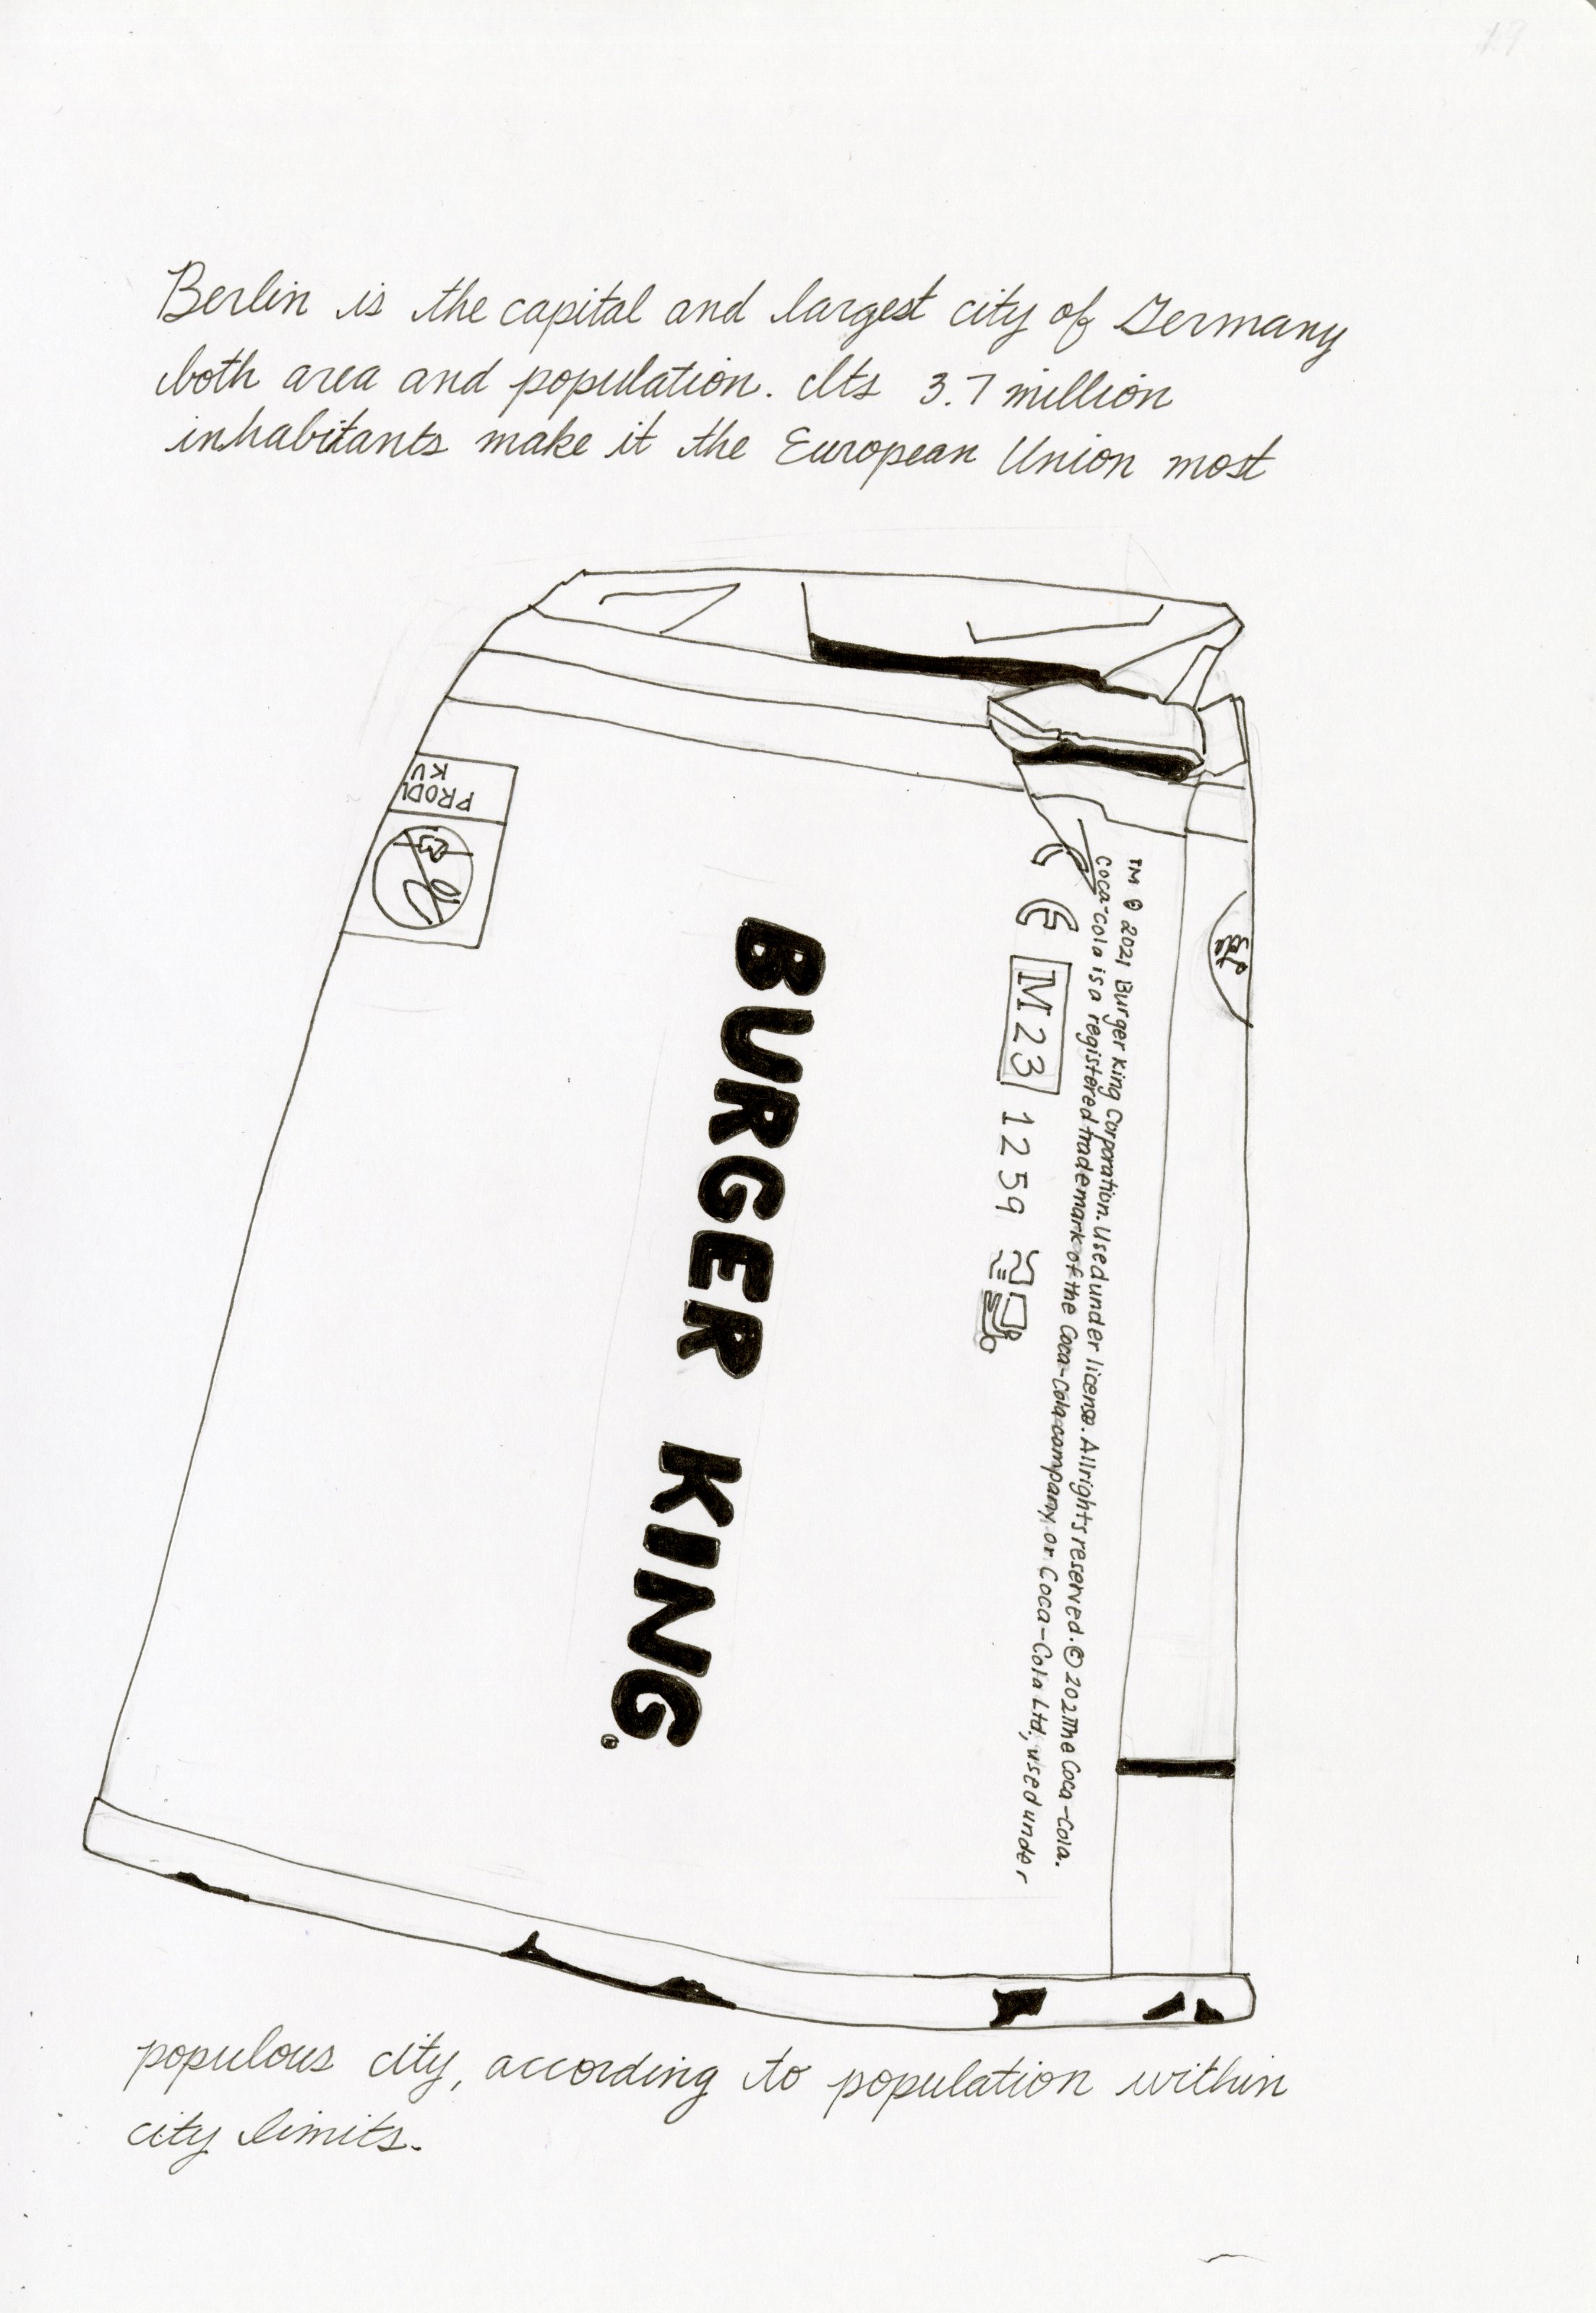 19
Berlin is the capital and largest city of Germany
both area and population. Its 3.7 million
inhabitants make it the European Union most
PRODU
KU
TM © 2021 Burger King Corporation. Used under license. All rights reserved. © 2021 The Coca-Cola.
Coca-Cola is a registered trademark of the Coca-Cola company, or Coca-Cola Ltd; used under
CE M23 1259
BURGER KING®
populous city, according to population within
city limits.